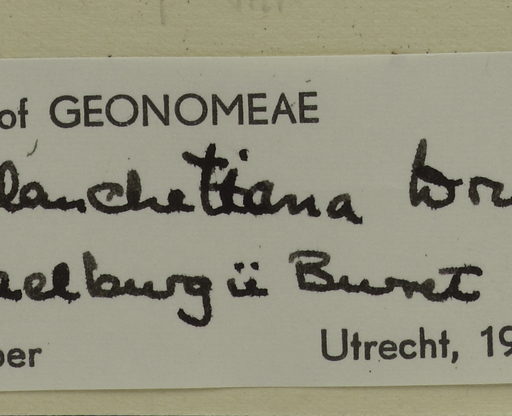 of GEONOMEAE
lanchetiana Dru
aelburgii Burret
ber
Utrecht, 19